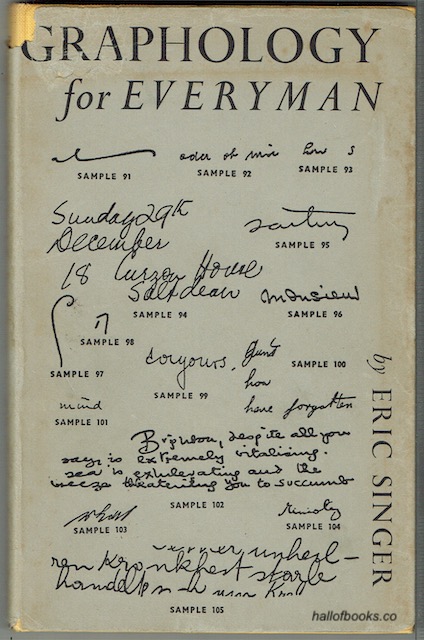 GRAPHOLOGY
for EVERYMAN
SAMPLE 91
SAMPLE 92
how s
SAMPLE 93
Sunday 29th
December
18 Curzon House
Saltdean
SAMPLE 94
SAMPLE 95
monsieur
SAMPLE 96
SAMPLE 97
SAMPLE 98
SAMPLE 99
have forgotten
SAMPLE 100
mind
SAMPLE 101
Brighton, despite all you
say, is extremely vitalising.
sea is exhilerating and the
threatening you to succumb
SAMPLE 102
SAMPLE 103
Ministry
SAMPLE 104
SAMPLE 105
by ERIC SINGER
hallofbooks.co